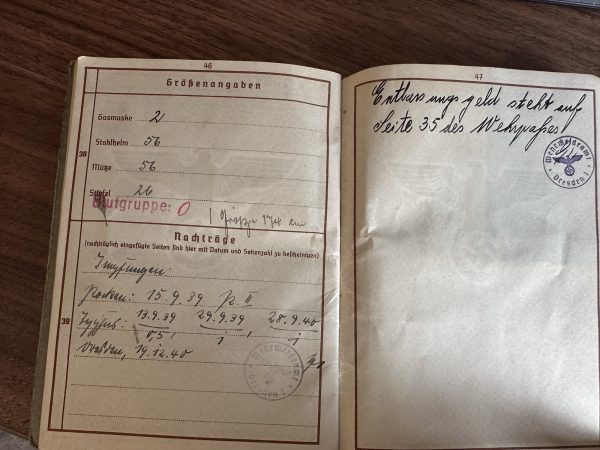 46
Größenangaben
Gasmaske 2
Stahlhelm 56
Mütze 56
Stiefel 26
Blutgruppe: O
Größe 174 cm
Nachträge
(nachträglich eingefügte Seiten sind hier mit Datum und Seitenzahl zu bescheinigen)
Impfungen:
Pocken: 15.9.39 P. II
Typhus: 13.9.39 29.9.39 28.9.40
0,5 1 1
Dresden, 19.12.40
38
39
Wehrmeldeamt
47
Entlassungsgeld steht auf
Seite 35 des Wehrpaßes
Wehrmeldeamt
Dresden I